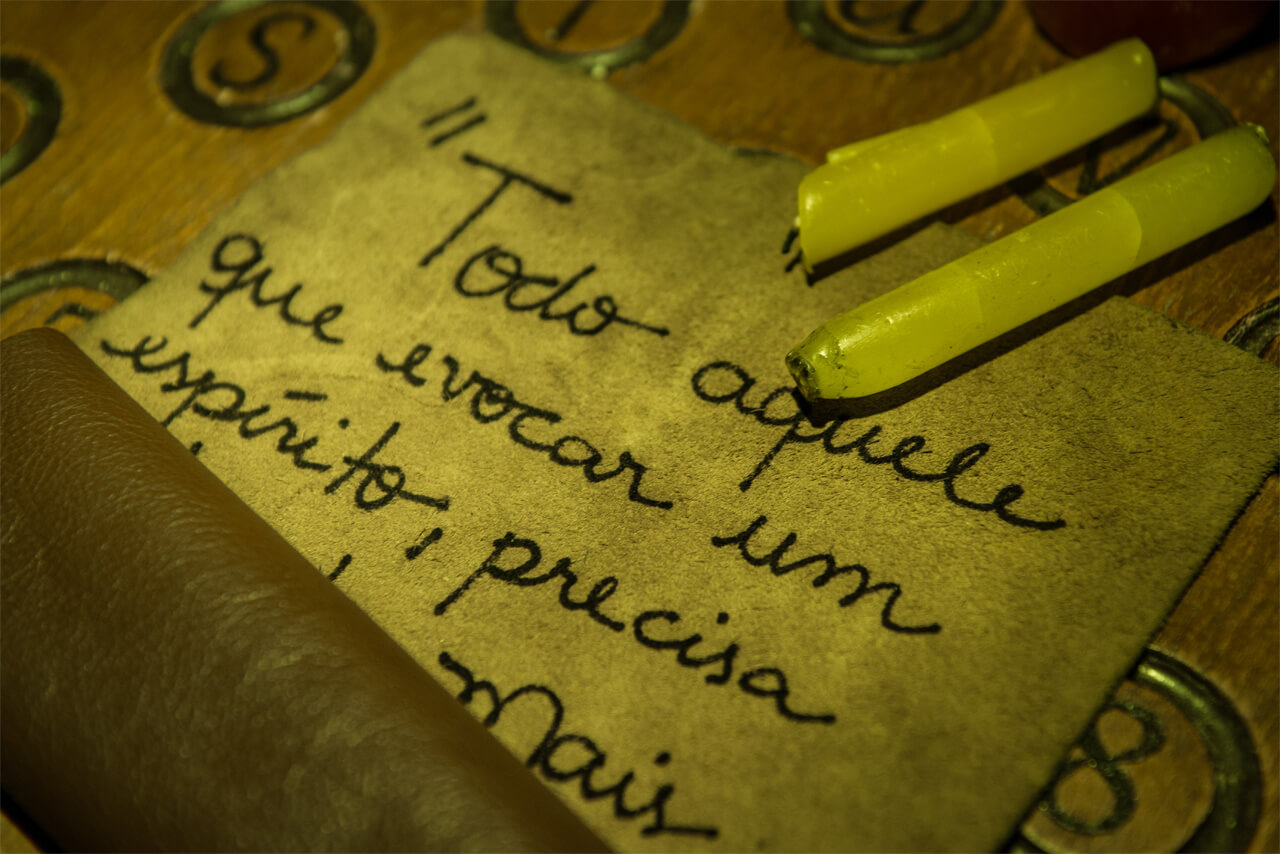 S a
"Todo aquele
que evocar um
espírito, precisa
Mais
8